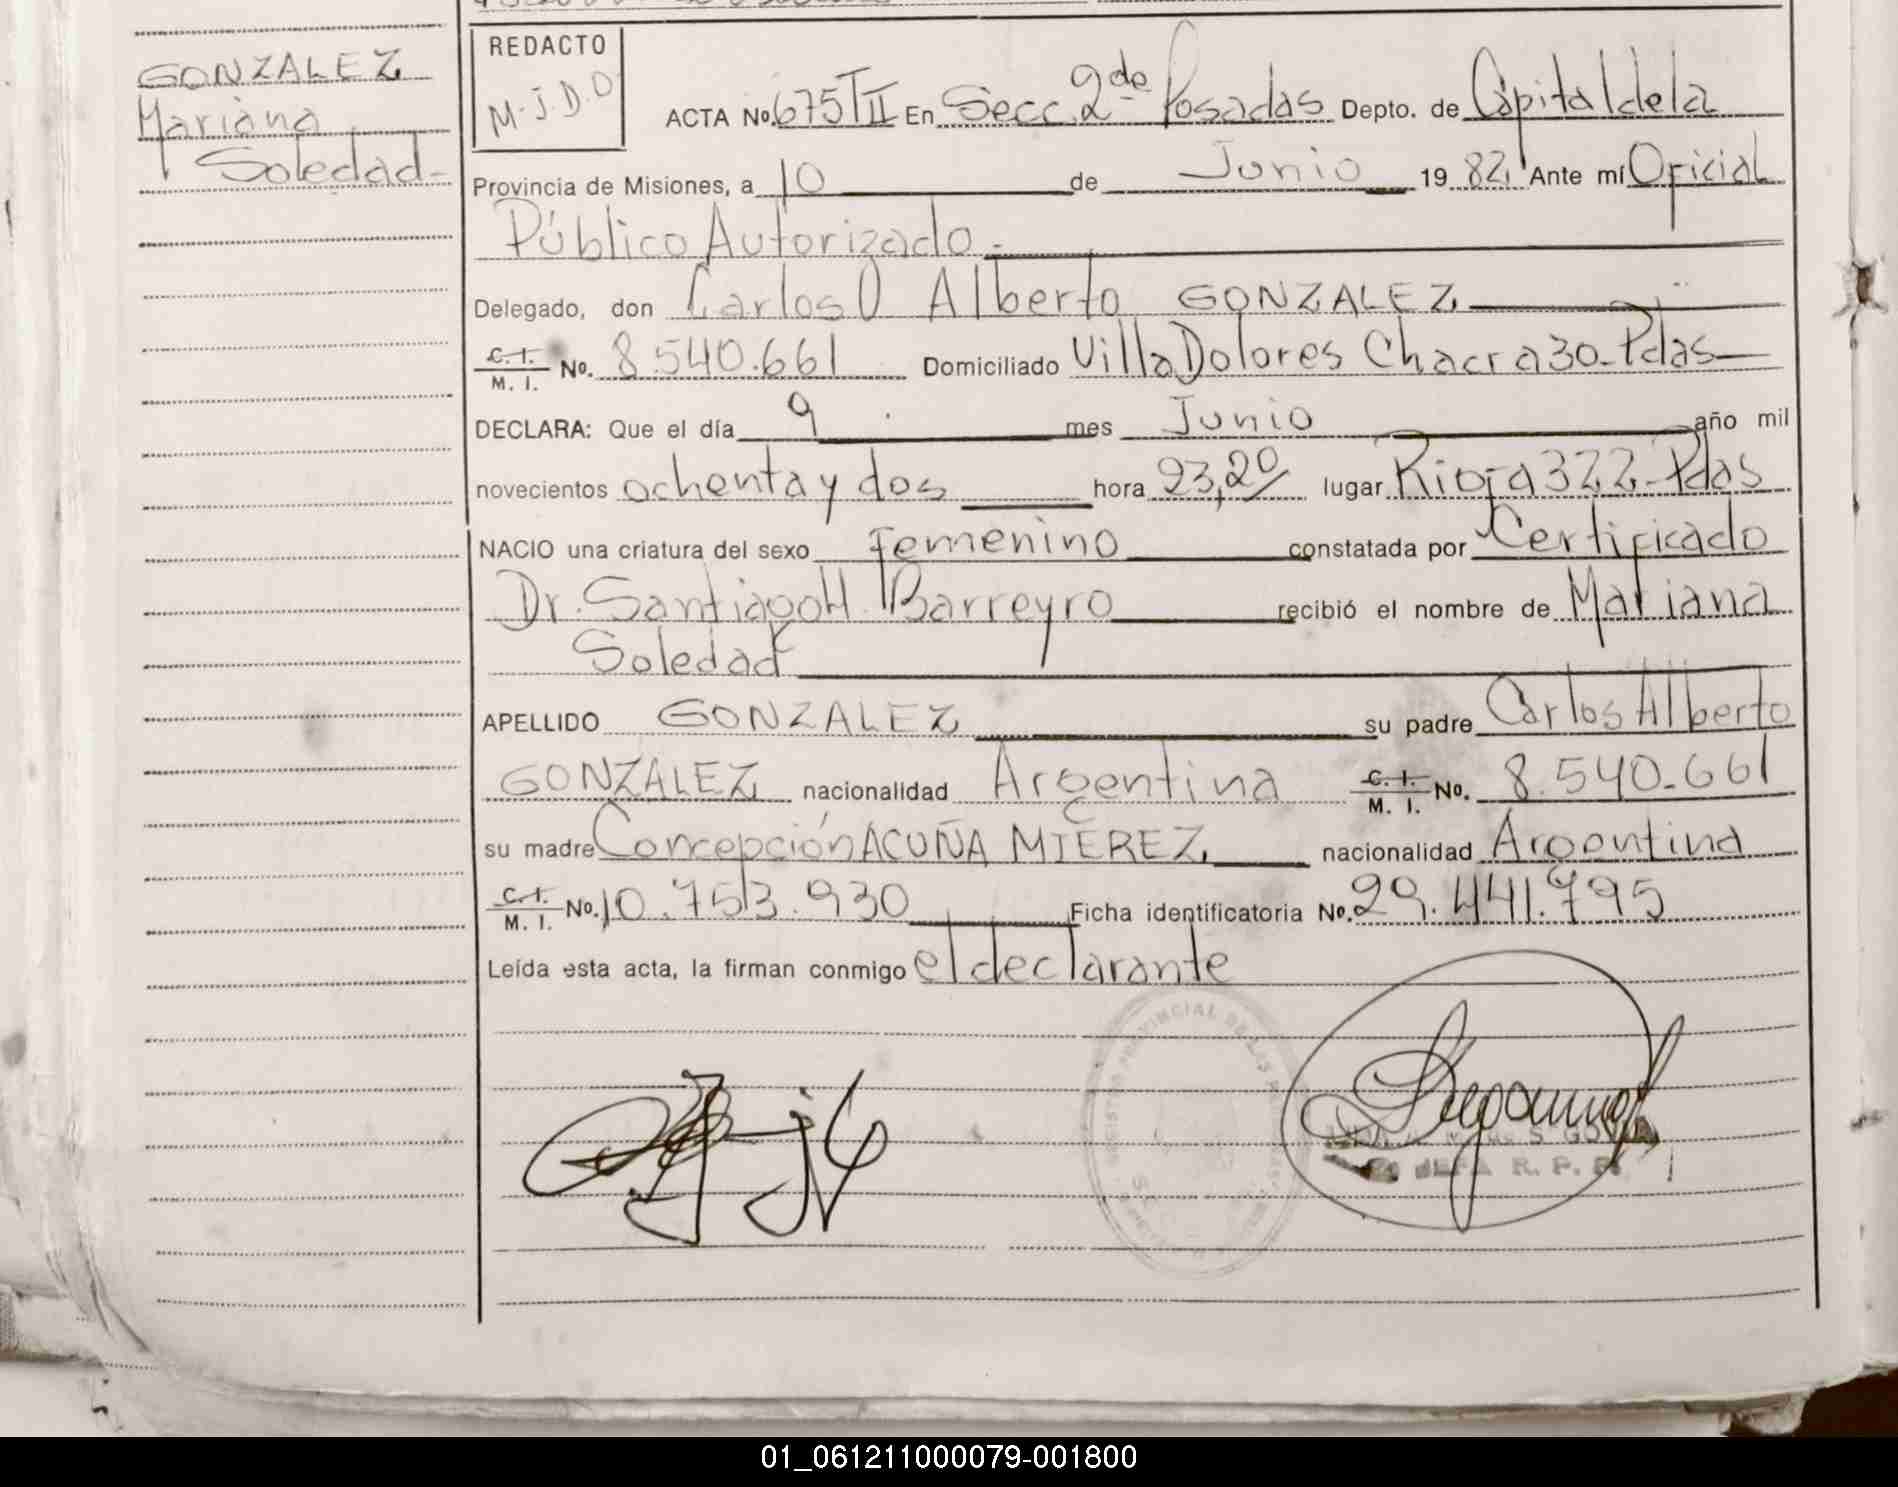 GONZALEZ
Mariana
Soledad-
REDACTO
M.J.D.O
ACTA No. 675 TII En Secc. 2da Posadas Depto. de Capital de la
Provincia de Misiones, a 10 de Junio 19 82, Ante mí Oficial
Público Autorizado.-
Delegado, don Carlos Alberto GONZALEZ
C. I. / M. I. No. 8.540.661 Domiciliado Villa Dolores Chacra 30-Pdas-
DECLARA: Que el día 9 mes Junio año mil
novecientos ochenta y dos hora 23,20 lugar Rioja 322-Pdas
NACIO una criatura del sexo femenino constatada por Certificado
Dr. Santiago H. Barreyro recibió el nombre de Mariana
Soledad
APELLIDO GONZALEZ su padre Carlos Alberto
GONZALEZ nacionalidad Argentina C. I. / M. I. No. 8.540.661
su madre Concepción ACUÑA MIEREZ, nacionalidad Argentina
C. I. / M. I. No. 10.753.930 Ficha identificatoria No. 29.441.795
Leída esta acta, la firman conmigo el declarante
REGISTRO PROVINCIAL DE LAS
JEFA R. P. P.
01_061211000079-001800